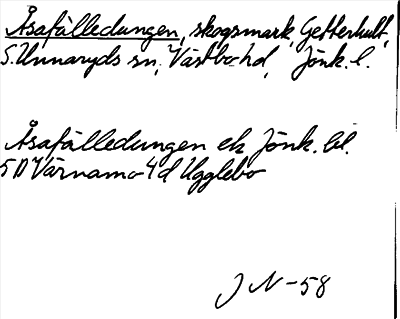 Åsafälledungen, skogsmark, Getterhult,
S. Unnaryds sn, Västbo hd, Jönk. l.
Åsafälledungen ek Jönk. bl.
5 D Värnamo 4 d Ugglebo
J N - 58